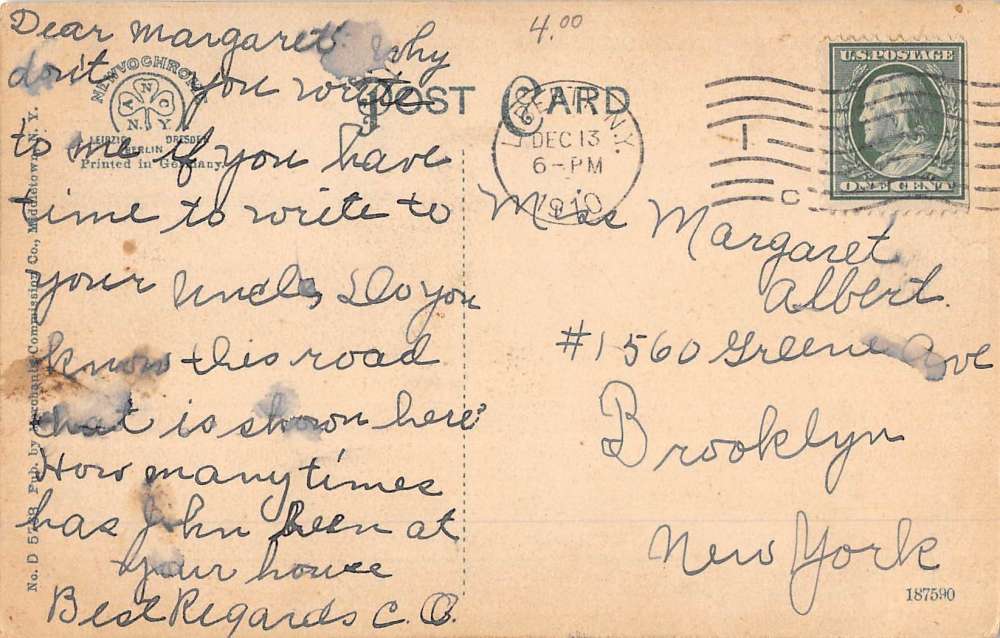 4.00
Dear Margaret Why
don't you write
to me if you have
time to write to
your Uncle, Do you
know this road
that is shown here?
How many times
has John been at
your house
Best Regards C. O.
NEWVOCHROME
A N C
N.Y.
LEIPZIG DRESDEN
BERLIN
Printed in Germany.
No. D 57 Pub. by Merchants Commission Co., Middletown, N. Y.
POST CARD
N.Y.
DEC 13
6-PM
1910
1
C
U.S. POSTAGE
ONE CENT
Miss Margaret
Albert.
#1560 Greene Ave
Brooklyn
New York
187590